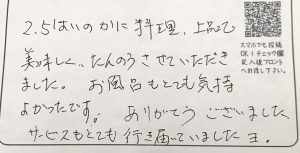 2.5はいのかに料理、上品で
美味しく、たんのうさせていただき
ました。お風呂もとても気持
よかったです。ありがとうございました
サービスもとても行き届いていましたヨ.
スマホでも投稿
OK！チェック欄
記入後フロント
へお渡し下さい。